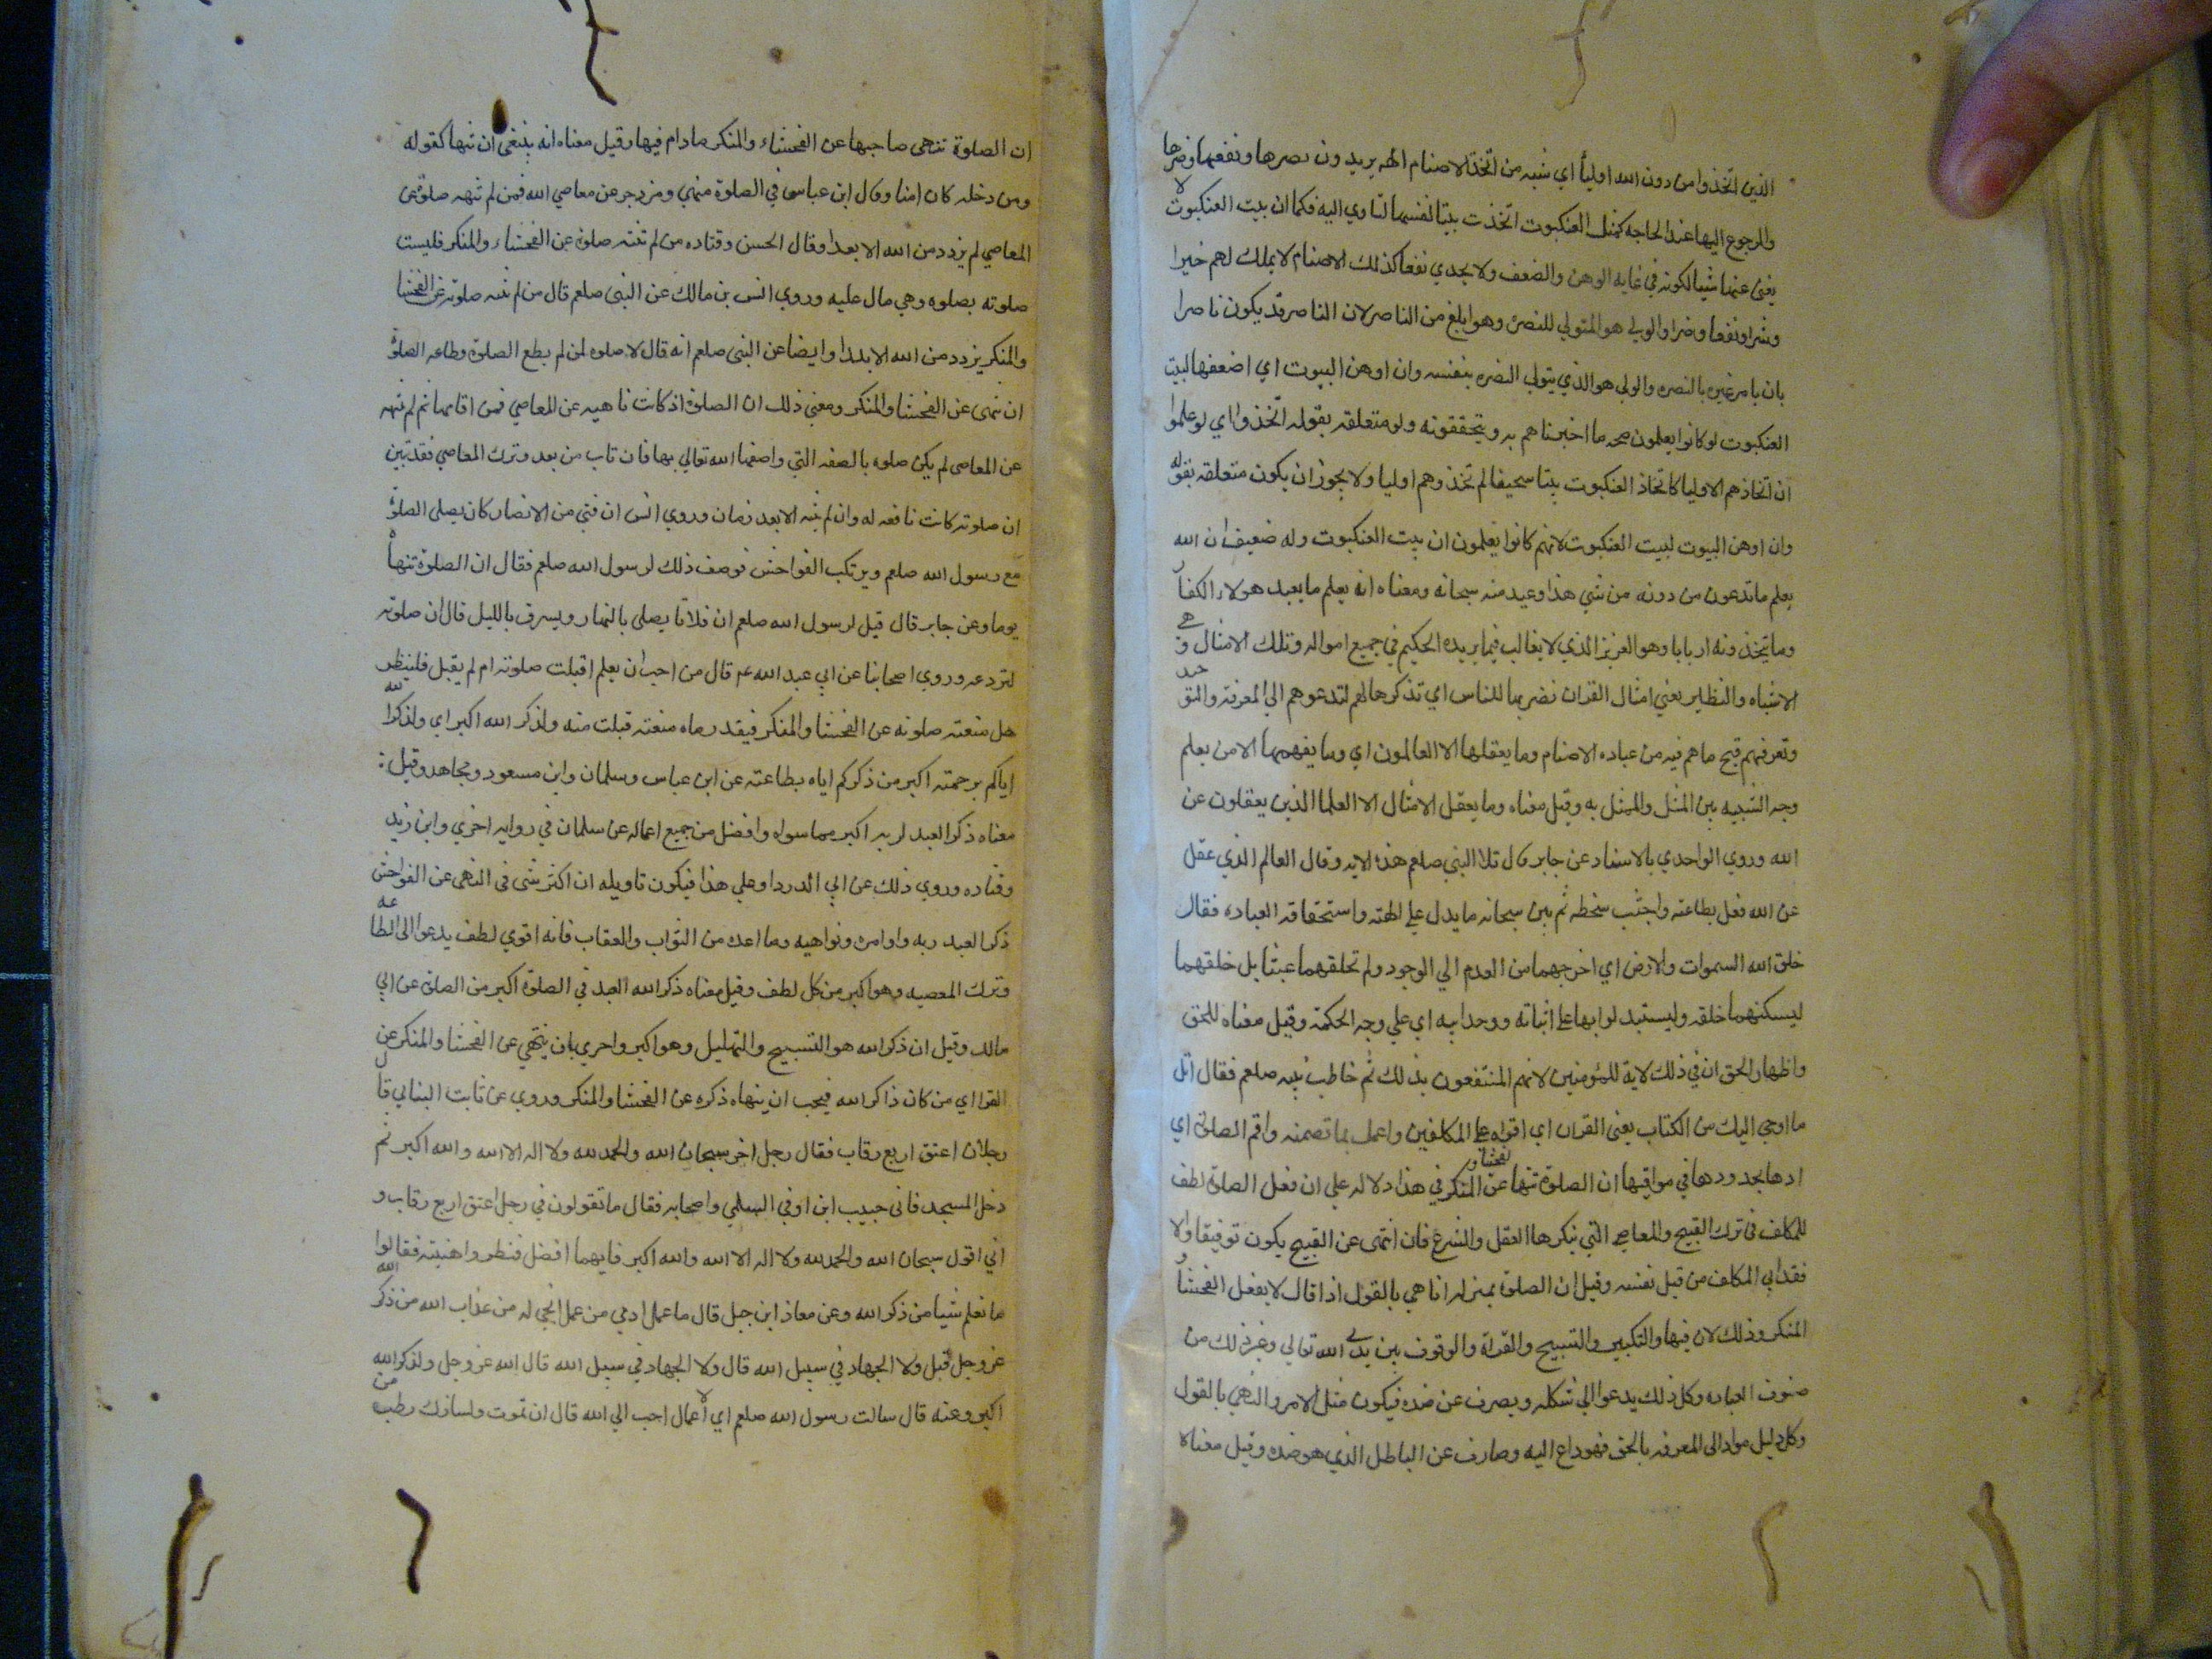 الذين اتخذوا من دون الله اوليأ اي شبه من اتخذ الاصنام الهه يريدون نصرها ونفعها وضرها
والرجوع اليها عند الحاجه كمثل العنكبوت اتخذت بيتا لنفسها لتاوي اليه فكما ان بيت العنكبوت لا
يغني عنها شيا لكونه في غايه الوهن والضعف ولا يجدي نفعا كذلك الاصنام لا يملك لهم خيرا
وشرا ونفعا وضرا والولي هو المتولي للنصرة وهو ابلغ من الناصر لان الناصر قد يكون ناصرا
بان يامر غيره بالنصره والولي هو الذي يتولي النصره بنفسه وان اوهن البيوت اي اضعفها لبيت
العنكبوت لو كانوا يعلمون صحه ما اخبرناهم به ويتحققونه ولو متعلقه بقوله اتخذوا اي لو علموا
ان اتخاذهم الاوليا كاتخاذ العنكبوت بيتا سحيفا لم تتخذوهم اوليا ولا يجوز ان يكون متعلقه بقوله
وان اوهن البيوت لبيت العنكبوت لانهم كانوا يعلمون ان بيت العنكبوت وله ضعيف ان الله
يعلم ما تدعون من دونه من شي هذا وعيد منه سبحانه ومعناه انه يعلم ما يعبد هولاء الكفا
وما يتخذونه اربابا وهو العزيز الذي لا يغالب فيما يريده الحكيم في جميع امواله وتلك الامثال و هي
الاشباه والنظاير يعني امثال القران نضربها للناس اي تذكرها لهم لتدعوهم الي المعرفة والتو حيد
وتعرفهم قبح ما هم فيه من عباده الاصنام وما يعقلها الا العالمون اي وما يفهمها الا من يعلم
وجه الشبه بين المثل والممثل به وقيل معناه وما يعقل الامثال الا العلما الذين يعقلون عن
الله وروي الواحدي بالاسناد عن جابر قال تلا النبي صلعم هذه الايه وقال العالم الذي عقل
عن الله فعل بطاعته واجتنب سخطه ثم بين سبحانه ما يدل علي الهته واستحقاقه العباده فقال
خلق الله السموات والارض اي اخرجهما من العدم الي الوجود ولم تخلقهما عبثا بل خلقهما
ليسكنهما خلقه وليستبدلوا بها علي اثباته ووحدا به اي علي وجه الحكمة وقيل معناه للحق
واظهار الحق ان في ذلك لاية للمؤمنين لانهم المنتفعون بذلك ثم خاطب نبيه صلعم فقال اتل
ما اوحي اليك من الكتاب يعني القران اي اقراه علي المكلفين واعمل بما تضمنه واقم الصلوة اي
ادها بحدودها في مواقيتها ان الصلوة تنها عن الفحشا و المنكر في هذا دلاله علي ان فعل الصلوة لطف
للمكلف في ترك القبيح والمعاصي التي ينكرها العقل والشرع فان انتهى عن القبيح يكون توفيقا والا
فقد اتي المكلف من قبل نفسه وقيل ان الصلوة بمنزله الناهي بالقول اذا قال لا يفعل الفحشا و
المنكر وذلك لان فيها والتكبير والتسبيح والقراة والوقوف بين يدي الله تعالي وغير ذلك من
صنوف العباده وكل ذلك يدعوا الي شكله ويصرف عن ضده فيكون مثل الامر والنهي بالقول
وكل دليل مواد الى المعرفه بالحق فهو داع اليه وصارف عن الباطل الذي هو ضده وقيل معناه
ان الصلوة تنهى صاحبها عن الفحشاء والمنكر مادام فيها وقيل معناه انه ينبغي ان تنها كقوله
ومن دخله كان امنا وقال ابن عباس في الصلوة منهي ومزدجر عن معاصي الله فمن لم تنهه صلوته عن
المعاصي لم يزدد من الله الا بعدا وقال الحسن وقتاده من لم تنته صلوة عن الفحشاء والمنكر فليست
صلوته بصلوه وهي مال عليه وروي انس بن مالك عن النبي صلعم قال من لم تنه صلوته عن الفحشا
والمنكر يزدد من الله الا بعدا وايضا عن النبي صلعم انه قال لا صلوه لمن لم يطع الصلوة وطاعه الصلوة
ان تنهى عن الفحشا والمنكر ومعني ذلك ان الصلوة اذ كانت ناهيه عن المعاصي فمن اقامها ثم لم تنهه
عن المعاصي لم يكن صلوه بالصفه التي واصفها الله تعالي بها فان تاب من بعد وترك المعاصي فقد تبين
ان صلوته كانت نافعه له وان لم ينته الا بعد زمان وروي انس ان فتي من الانصار كان يصلي الصلوة
مع رسول الله صلعم ويرتكب الفواحش فوصف ذلك لرسول الله صلعم فقال ان الصلوة تنهاه
يوما وعن جابر قال قيل لرسول الله صلعم ان فلانا يصلي بالنهار ويسرق بالليل قال ان صلوته
لتردعه وروي اصحابنا عن ابي عبد الله عم قال من احب ان يعلم اقبلت صلوته ام لم يقبل فلينظر
هل منعته صلوته عن الفحشا والمنكر فبقدر ماه منعته قبلت منه ولذكر الله اكبر اي ولذكر الله
اياكم برحمته اكبر من ذكركم اياه بطاعته عن ابن عباس وسلمان وابن مسعود ومجاهد وقيل :
معناه ذكر العبد لربه اكبر مما سواه وافضل من جميع اعماله عن سلمان في روايه اخري وابن زيد
وقتاده وروي ذلك عن ابي الدردا وعلي هذا فيكون تاويله ان اكثر شي في النهي عن الفواحش
ذكر العبد ربه واوامره ونواهيه وما اعد من الثواب والعقاب فانه اقوي لطف يدعوا الى الطا عه
وترك المعصيه وهو اكبر من كل لطف وقيل معناه ذكر الله العبد في الصلوة اكبر من الصلوة عن ابي
مالك وقيل ان ذكر الله هو التسبيح والتهليل وهو اكبر واحري بان ينهي عن الفحشا والمنكر عن
الفرا اي من كان ذاكر الله فيجب ان ينهاه ذكره عن الفحشا والمنكر وروي عن ثابت البناني قا ل
رجلان اعتق اربع رقاب فقال رجل اخر سبحان الله والحمد لله ولا اله الا الله والله اكبر ثم
دخل المسجد فاتى حبيب ابن اوفي السلمي واصحابه فقال ما تقولون في رجل اعتق اربع رقاب و
اني اقول سبحان الله والحمد لله ولا اله الا الله والله اكبر فايهما افضل فنظروا هنيئه فقالوا
ما نعلم شيا من ذكر الله وعن معاذ ابن جبل قال ما عمل ادمي من عمل انجي له من عذاب الله من ذكر الله
عز وجل قيل ولا الجهاد في سبيل الله قال ولا الجهاد في سبيل الله قال الله عز وجل ولذكر الله
اكبر وعنه قال سالت رسول الله صلعم اي الاعمال احب الي الله قال ان تموت ولسانك رطب من